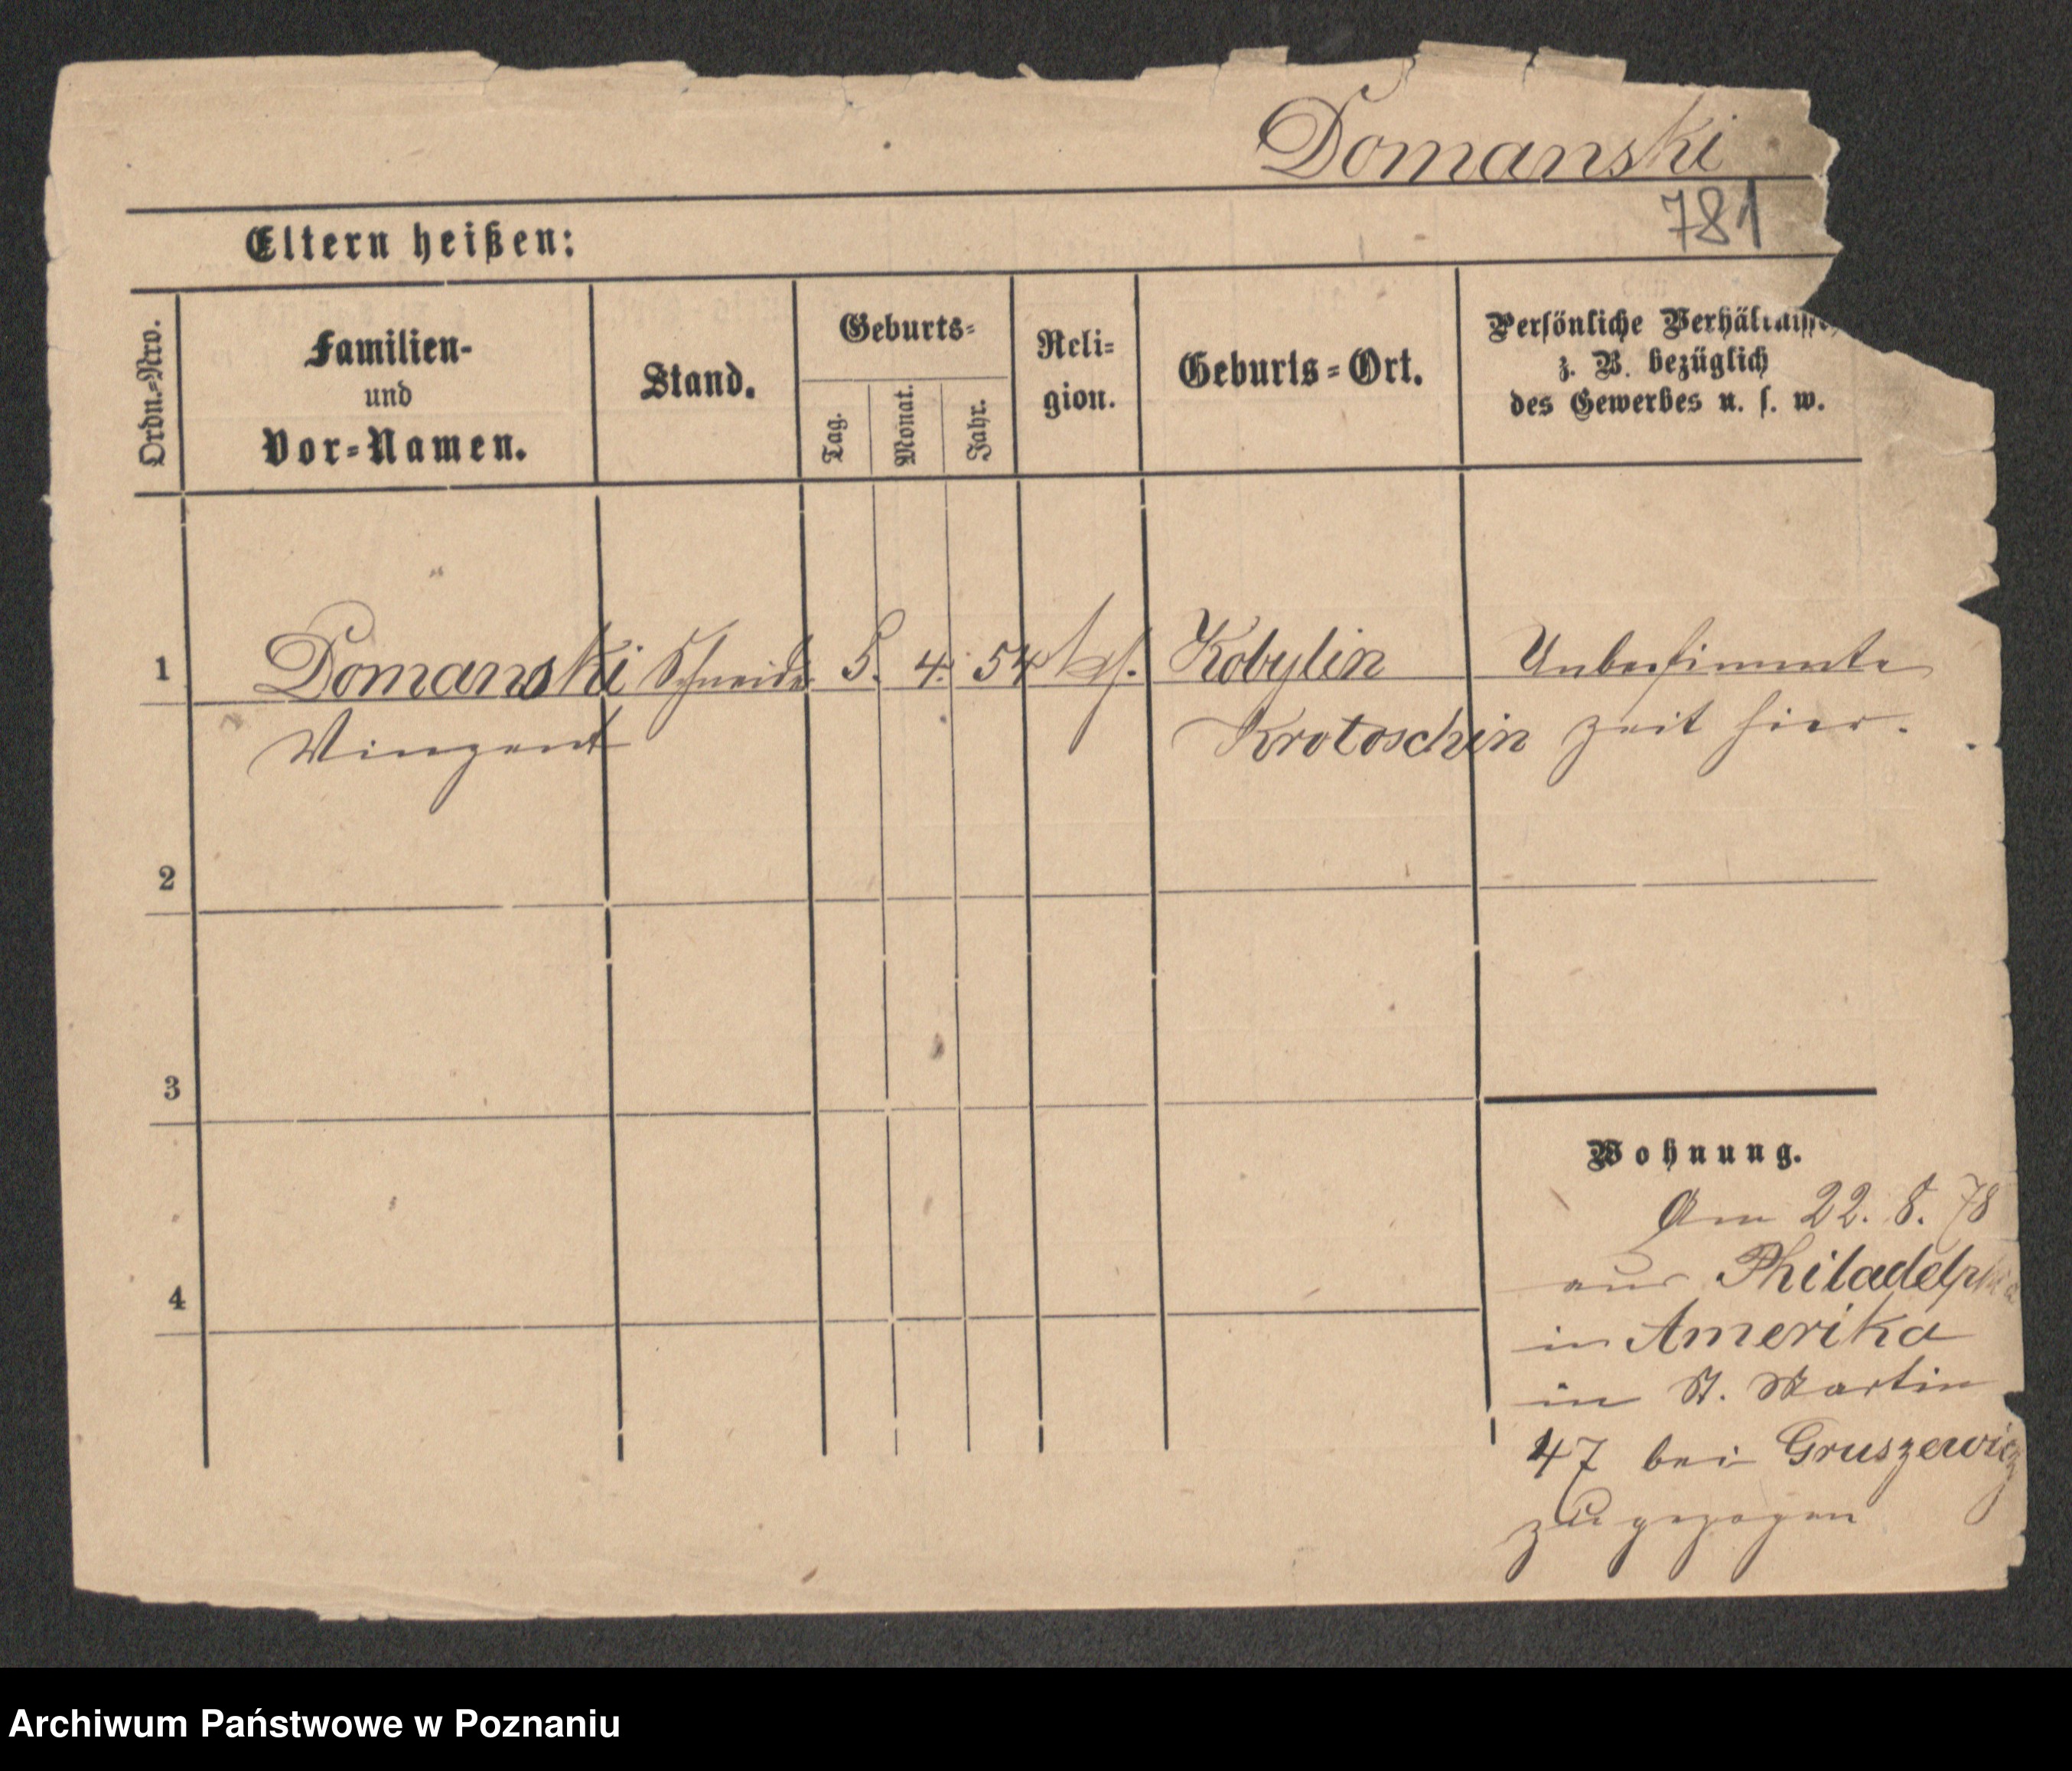 Domanski
781
Eltern heißen:
Ordn.-Nro.
Familien-
und
Vor-Namen.
Stand.
Geburts-
Tag.
Monat.
Jahr.
Reli-
gion.
Geburts-Ort.
Persönliche Verhältnisse,
z. B. bezüglich
des Gewerbes u. s. w.
1 Domanski Schneider 5. 4. 54 kath. Kobylin Unbestimmte
Vinzent Krotoschin Zeit hier.
2
3
4
Wohnung.
Am 22. 8. 78
aus Philadelphia
in Amerika
in St. Martin
47 bei Gruszewicz
zugezogen
Archiwum Państwowe w Poznaniu